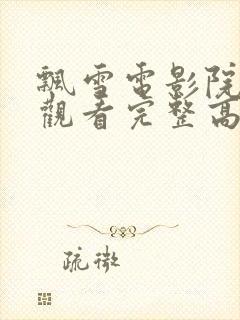 飄雪電影院
觀看完整高
疏微